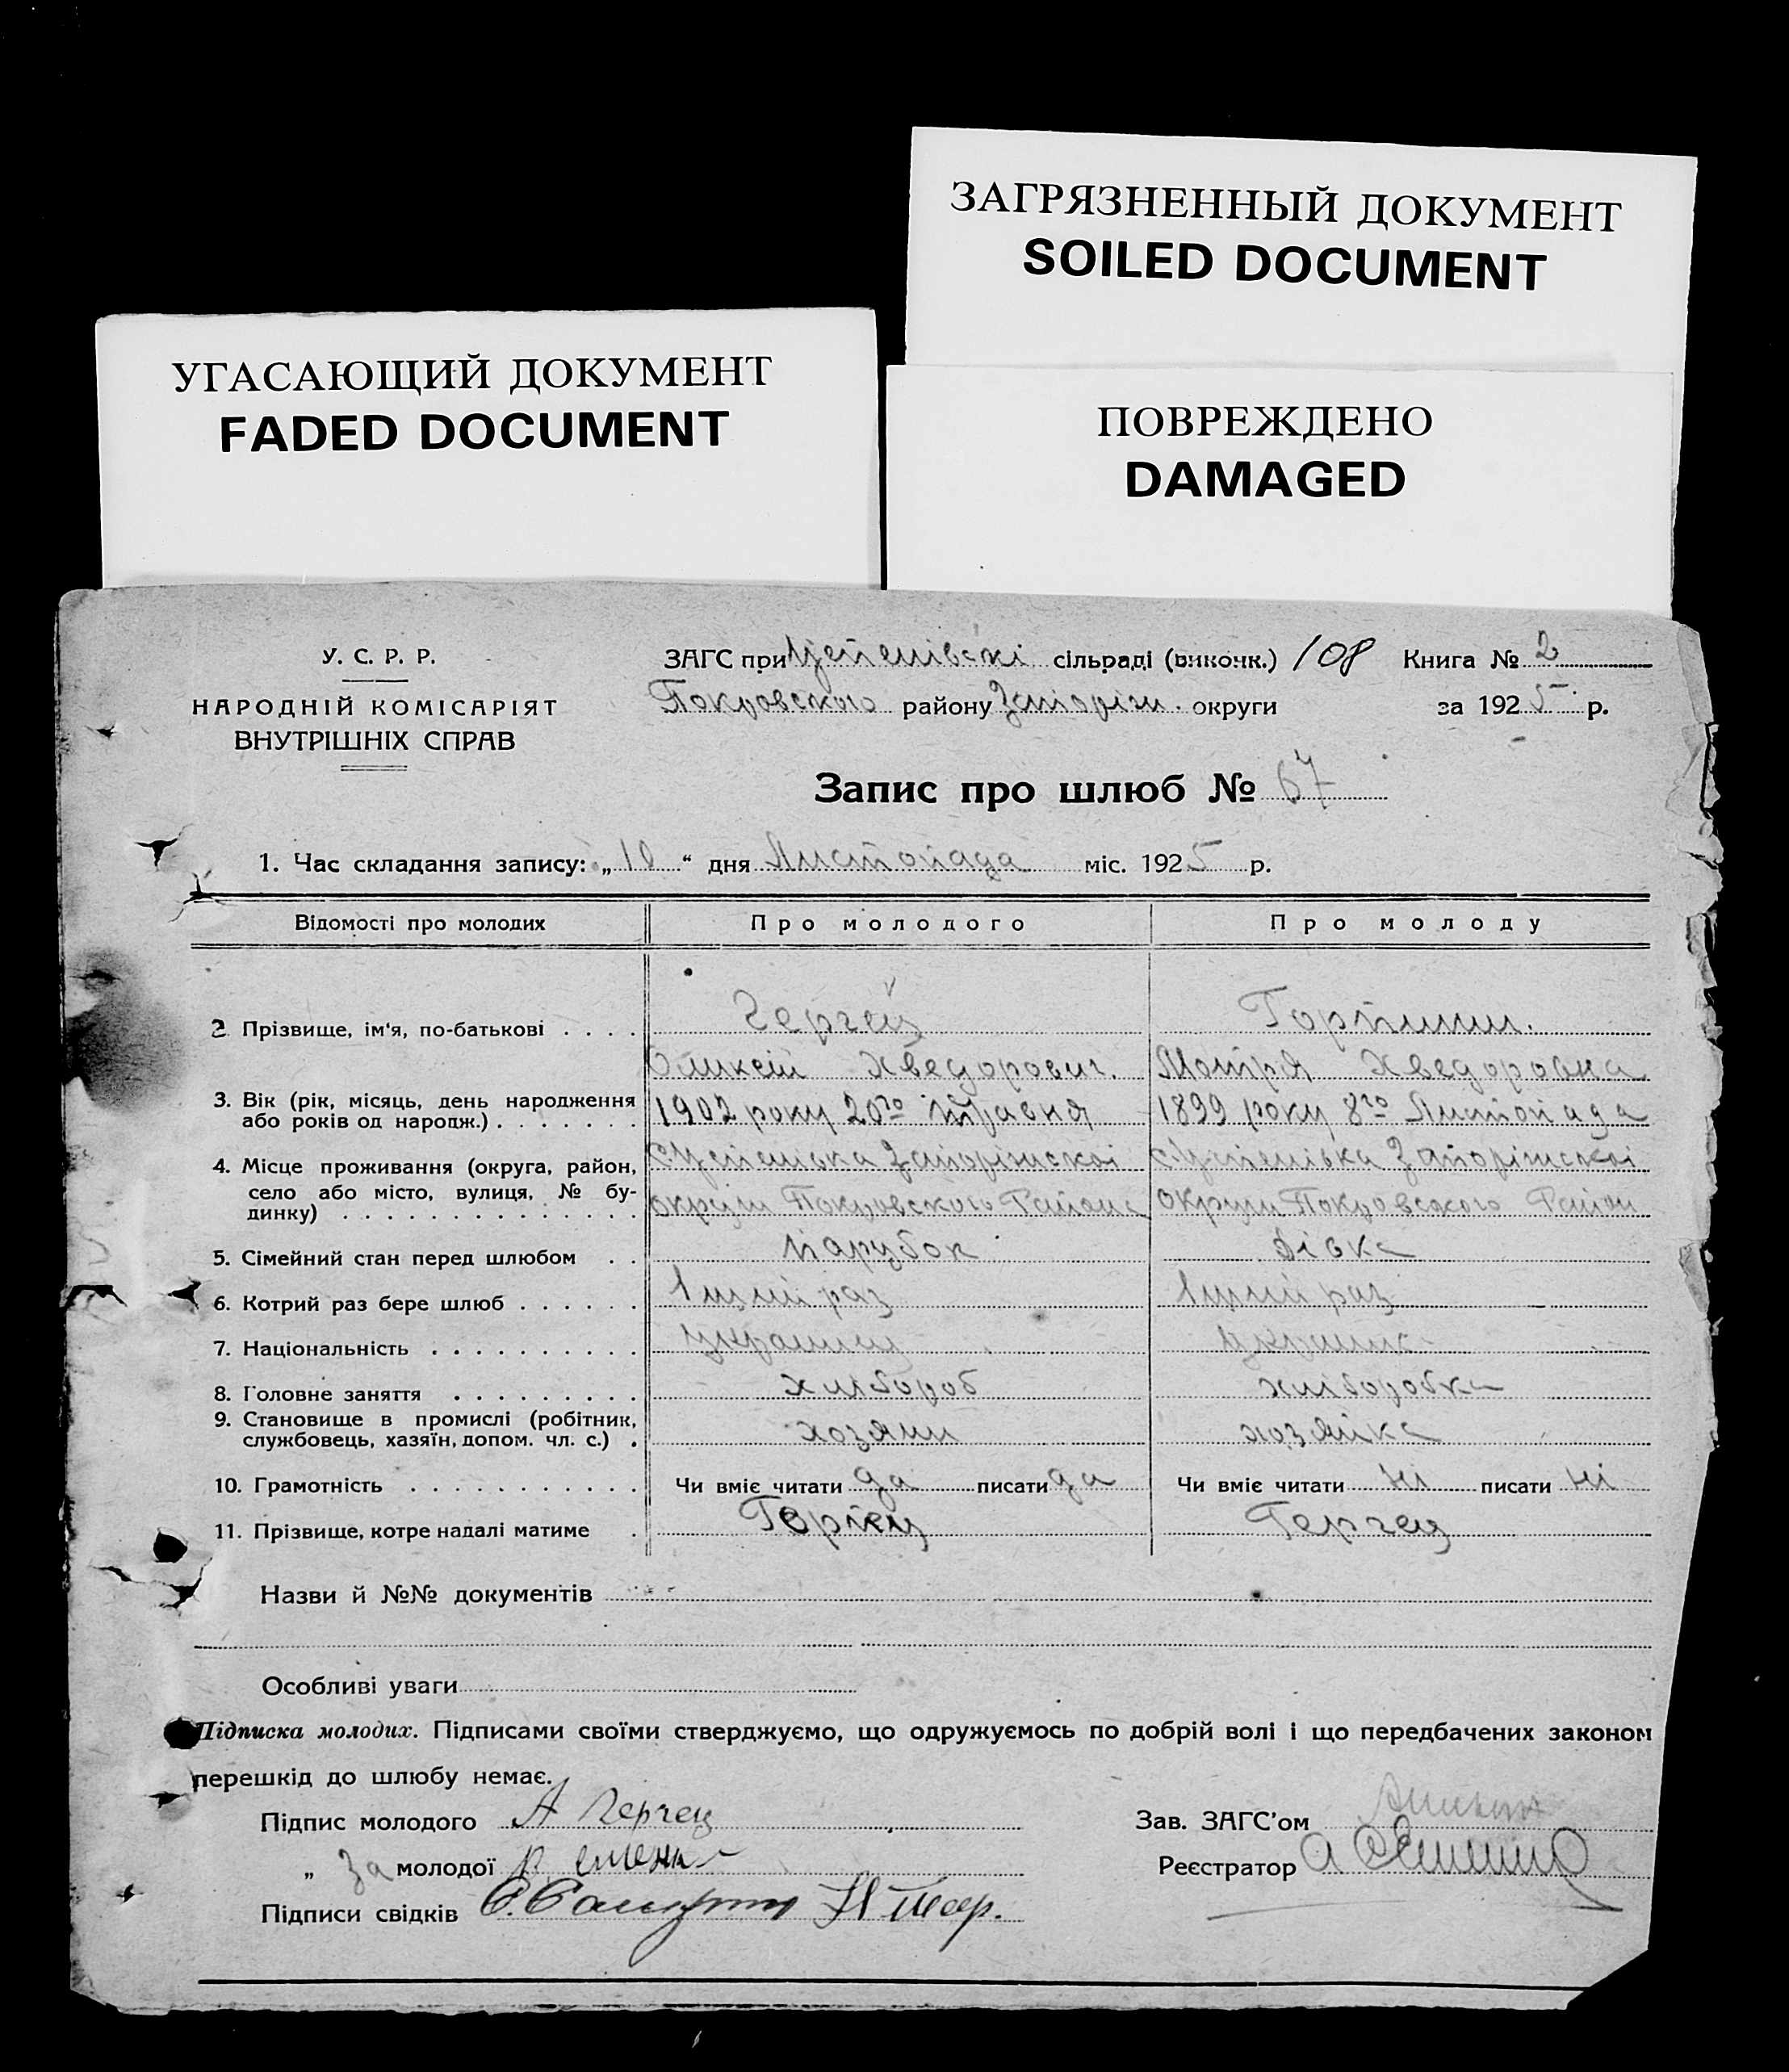 ЗАГРЯЗНЕННЫЙ ДОКУМЕНТ
SOILED DOCUMENT
УГАСАЮЩИЙ ДОКУМЕНТ
FADED DOCUMENT
ПОВРЕЖДЕНО
DAMAGED
У. С. Р. Р.
НАРОДНІЙ КОМІСАРІЯТ
ВНУТРІШНІХ СПРАВ
ЗАГС при сільраді (виконк.) 108 Книга № 2
Покровского району Запоріж. округи за 1925 р.
Запис про шлюб № 67
1. Час складання запису: „10“ дня Листопада міс. 1925 р.
Відомості про молодих Про молодого Про молоду
2 Прізвище, ім'я, по-батькові . . . . Герчец
Хведорович. Мотря Хведоровна
3. Вік (рік, місяць, день народження
або років од народж.) . . . . . . . 1902 року 20го Травня 1899 року 8го Листопада
4. Місце проживання (округа, район,
село або місто, вулиця, № бу-
динку) . . . . . . . . . . . . . . . округи Покровского Району округи Покровского Район
5. Сімейний стан перед шлюбом . . Парубок Дівка
6. Котрий раз бере шлюб . . . . . . 1ший раз 1ший раз
7. Національність . . . . . . . . . . украинец
8. Головне заняття . . . . . . . . . хлібороб хліборобка
9. Становище в промислі (робітник,
службовець, хазяїн, допом. чл. с.) . хозяин хозяйка
10. Грамотність . . . . . . . . . . . Чи вміє читати да писати да Чи вміє читати ні писати ні
11. Прізвище, котре надалі матиме . Герчец Герчец
Назви й №№ документів
Особливі уваги
Підписка молодих. Підписами своїми стверджуємо, що одружуємось по добрій волі і що передбачених законом
перешкід до шлюбу немає.
Підпис молодого А Герчец Зав. ЗАГС'ом
„ За молодої Реєстратор
Підписи свідків